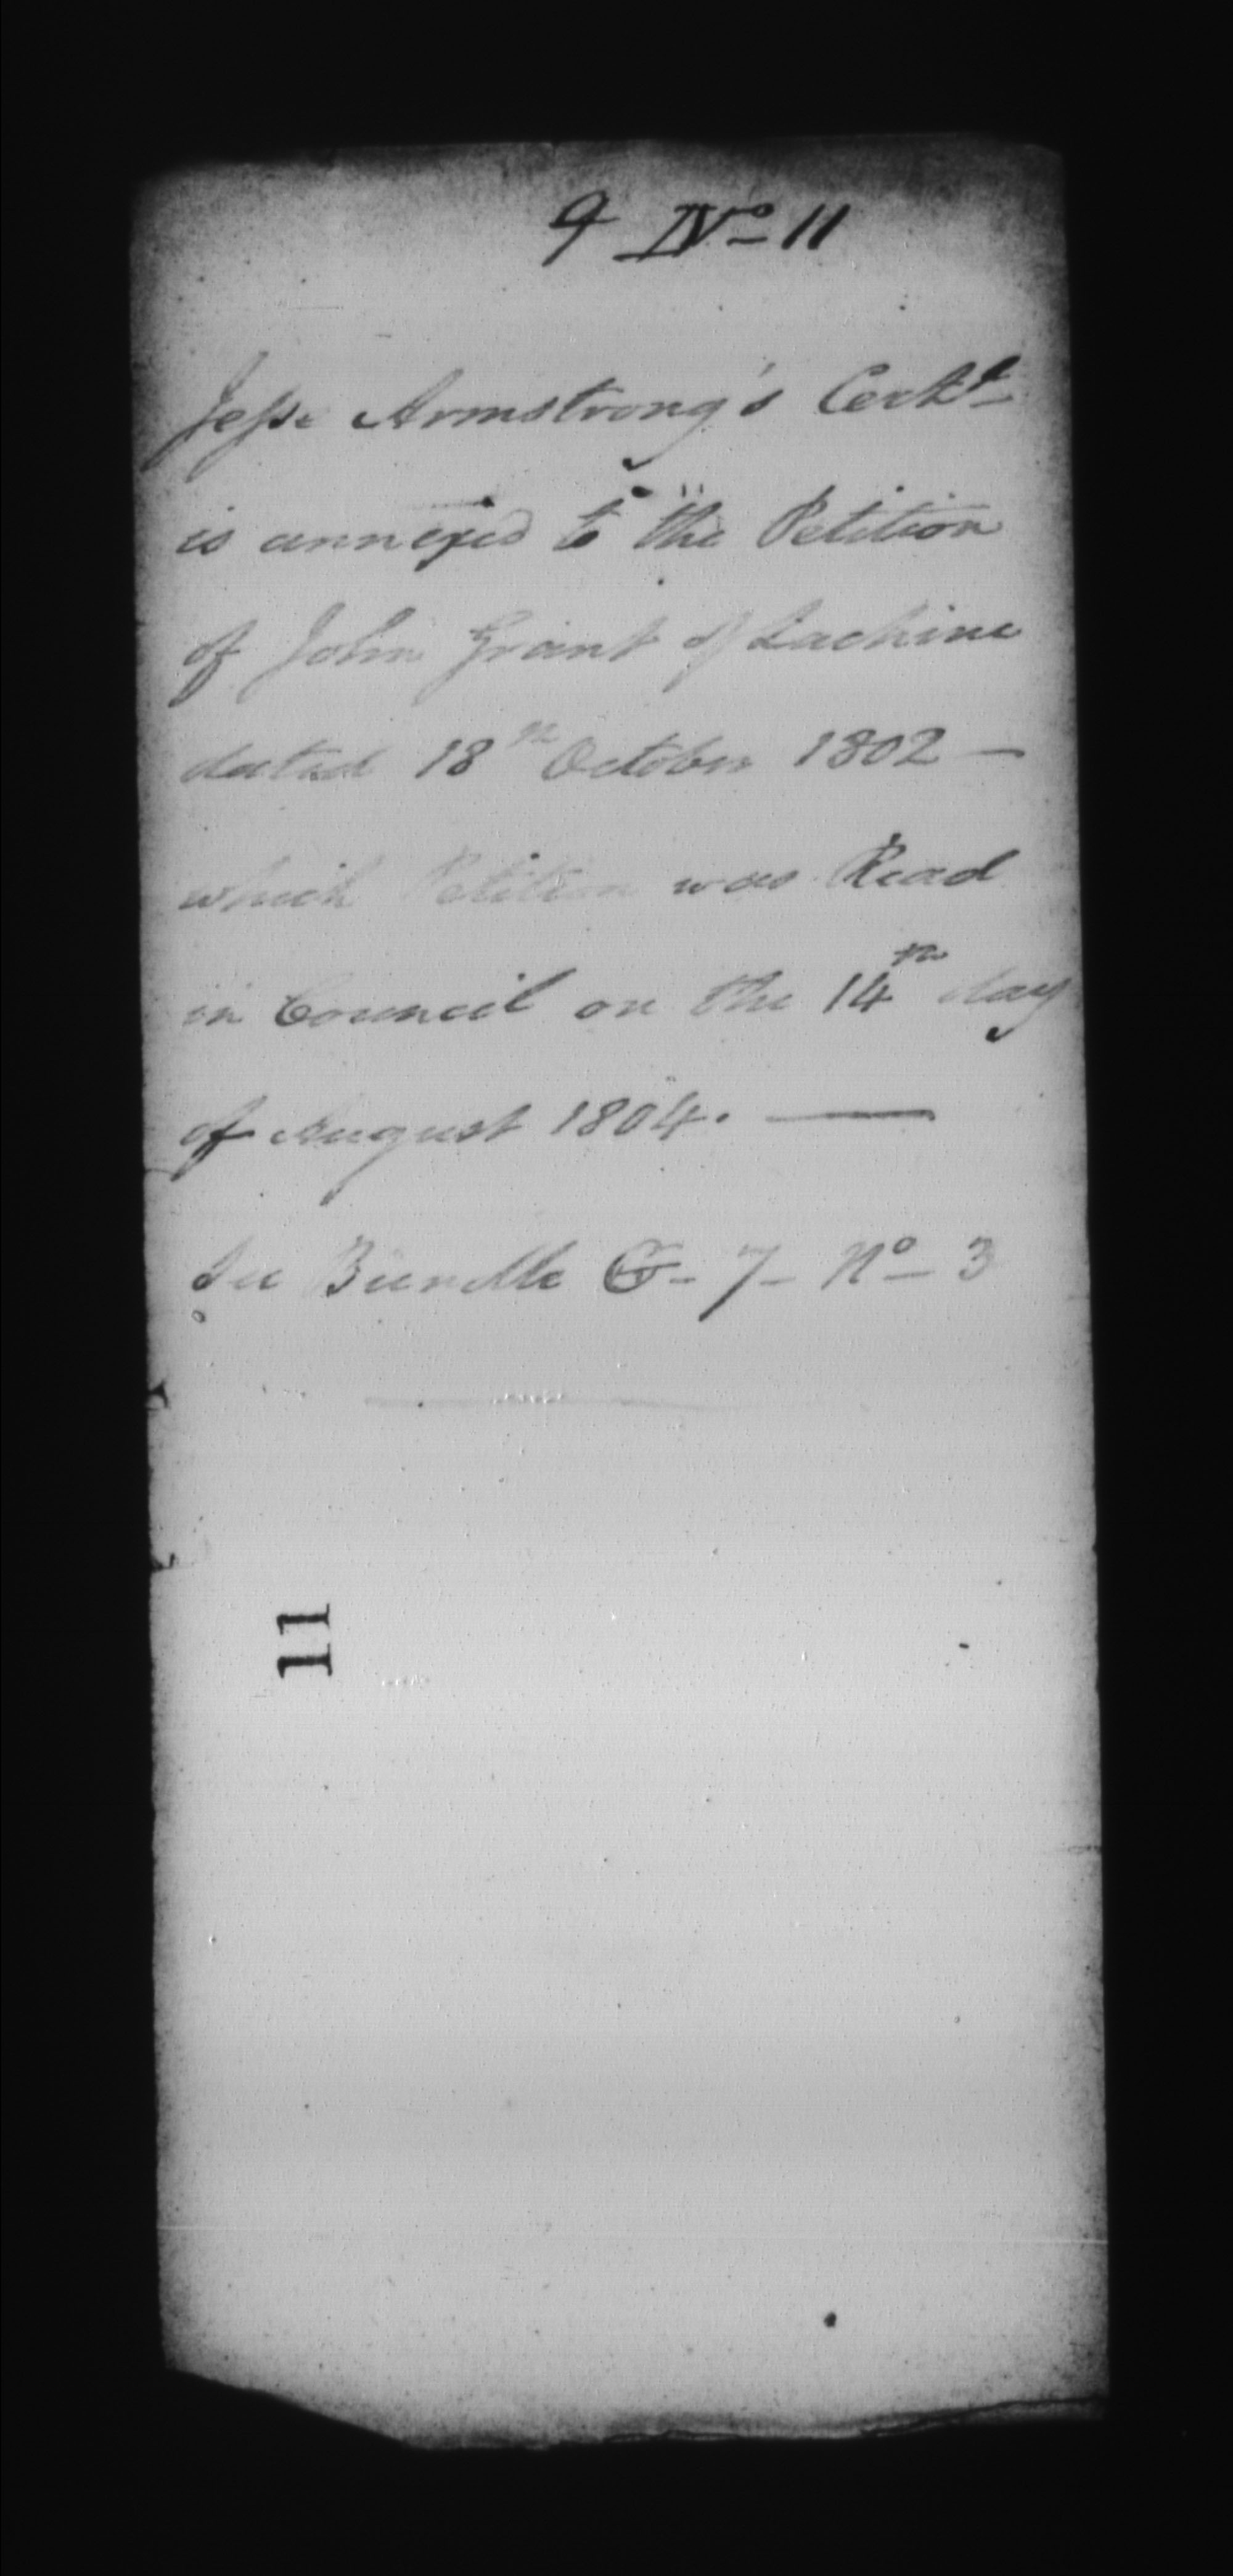 9 Nº 11
Jesse Armstrong's Certt
is annexed to the Petition
of John Grant of Lachine
dated 18th October 1802 —
which Petition was Read
in Council on the 14th day
of August 1804. —
See Bundle G - 7 - Nº 3
11